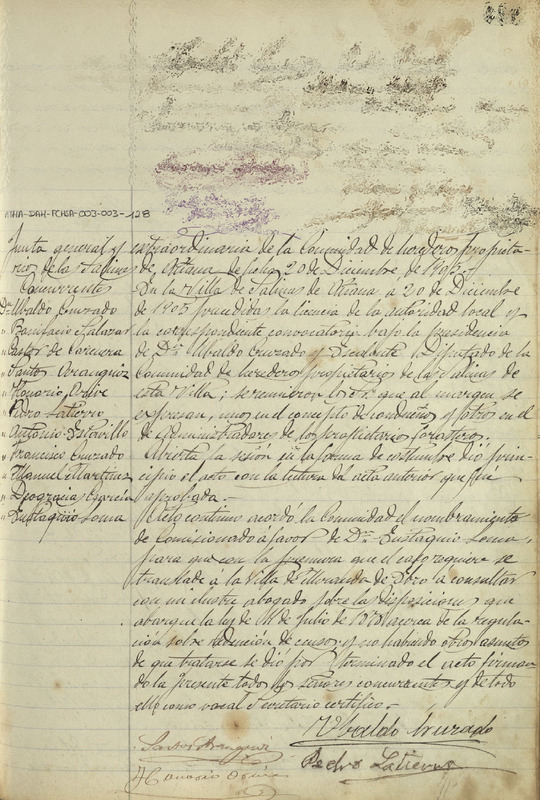 ATHA-DAH-FCHSA-003-003-128
Junta general y extraordinaria de la Comunidad de herederos propieta-
rios de las Salinas de Añana de fecha 20 de Diciembre de 1905.
Concurrentes
Dn. Ubaldo Cruzado
" Bonifacio Salazar
" Pastor de Corcuera
" Santos Aranguiz
" Honorio Ordive
" Pedro Latierro
" Antonio Estavillo
" Francisco Cruzado
" Manuel Martinez
" Deogracias Esparza
" Eustaquio Loma
En la Villa de Salinas de Añana a 20 de Diciembre
de 1905 precedida la licencia de la autoridad local y
la correspondiente convocatoria bajo la Presidencia
de Dn. Ubaldo Cruzado y Diputado de la
Comunidad de herederos propietarios de las Salinas de
esta Villa; se reunieron los Sres. que al margen se
expresan, unos en el concepto de condueños y otros en el
de Administradores de los propietarios forasteros.
Abierta la sesión en la forma de costumbre dió prin-
cipio el acto con la lectura del acta anterior que fué
aprobada.
Acto continuo acordó la Comunidad el nombramiento
de Comisionado á favor de Dn. Eustaquio Loma,
para que con la premura que el caso requiere se
translade a la Villa de Miranda de Ebro a consultar
con un ilustre abogado sobre las disposiciones que
abarque la ley de 11 de Julio de 1878 acerca de la regula-
ción sobre redención de censos; y no habiendo otros asuntos
de que tratarse se dió por terminado el acto firman-
do la presente todos los señores concurrentes y de todo
ello como vocal Secretario certifico.
Ubaldo Cruzado
Santos Aranguiz
Pedro Latierro
Honorio Ordive